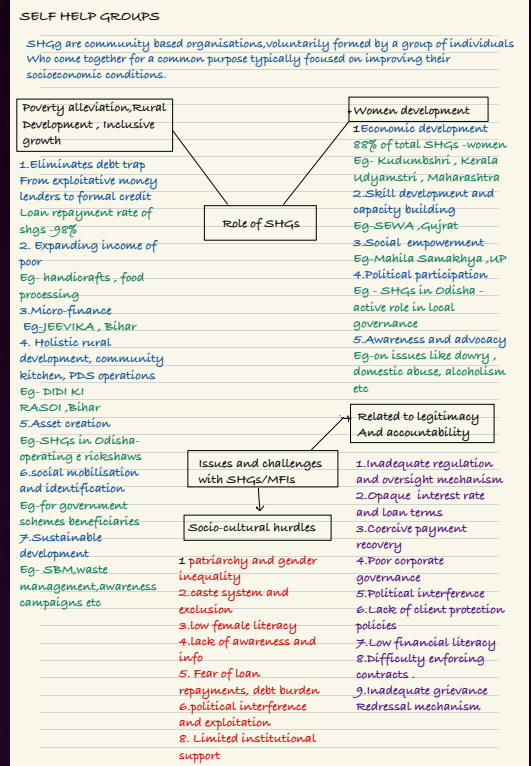 SELF HELP GROUPS
SHGg are community based organisations,voluntarily formed by a group of individuals
Who come together for a common purpose typically focused on improving their
socioeconomic conditions.
Poverty alleviation,Rural
Development , Inclusive
growth
1.Eliminates debt trap
From exploitative money
lenders to formal credit
Loan repayment rate of
shgs -98%
2. Expanding income of
poor
Eg- handicrafts , food
processing
3.Micro-finance
Eg-JEEVIKA , Bihar
4. Holistic rural
development, community
kitchen, PDS operations
Eg- DIDI KI
RASOI ,Bihar
5.Asset creation
Eg-SHGs in Odisha-
operating e rickshaws
6.social mobilisation
and identification
Eg-for government
schemes beneficiaries
7.Sustainable
development
Eg- SBM,waste
management,awareness
campaigns etc
Role of SHGs
Women development
1Economic development
88% of total SHGs -women
Eg- Kudumbshri , Kerala
Udyamstri , Maharashtra
2.Skill development and
capacity building
Eg-SEWA ,Gujrat
3.Social empowerment
Eg-Mahila Samakhya ,UP
4.Political participation
Eg - SHGs in Odisha -
active role in local
governance
5.Awareness and advocacy
Eg-on issues like dowry ,
domestic abuse, alcoholism
etc
Issues and challenges
with SHGs/MFIs
Socio-cultural hurdles
1 patriarchy and gender
inequality
2.caste system and
exclusion
3.low female literacy
4.lack of awareness and
info
5. Fear of loan
repayments, debt burden
6.political interference
and exploitation
8. Limited institutional
support
Related to legitimacy
And accountability
1.Inadequate regulation
and oversight mechanism
2.Opaque interest rate
and loan terms
3.Coercive payment
recovery
4.Poor corporate
governance
5.Political interference
6.Lack of client protection
policies
7.Low financial literacy
8.Difficulty enforcing
contracts .
9.Inadequate grievance
Redressal mechanism